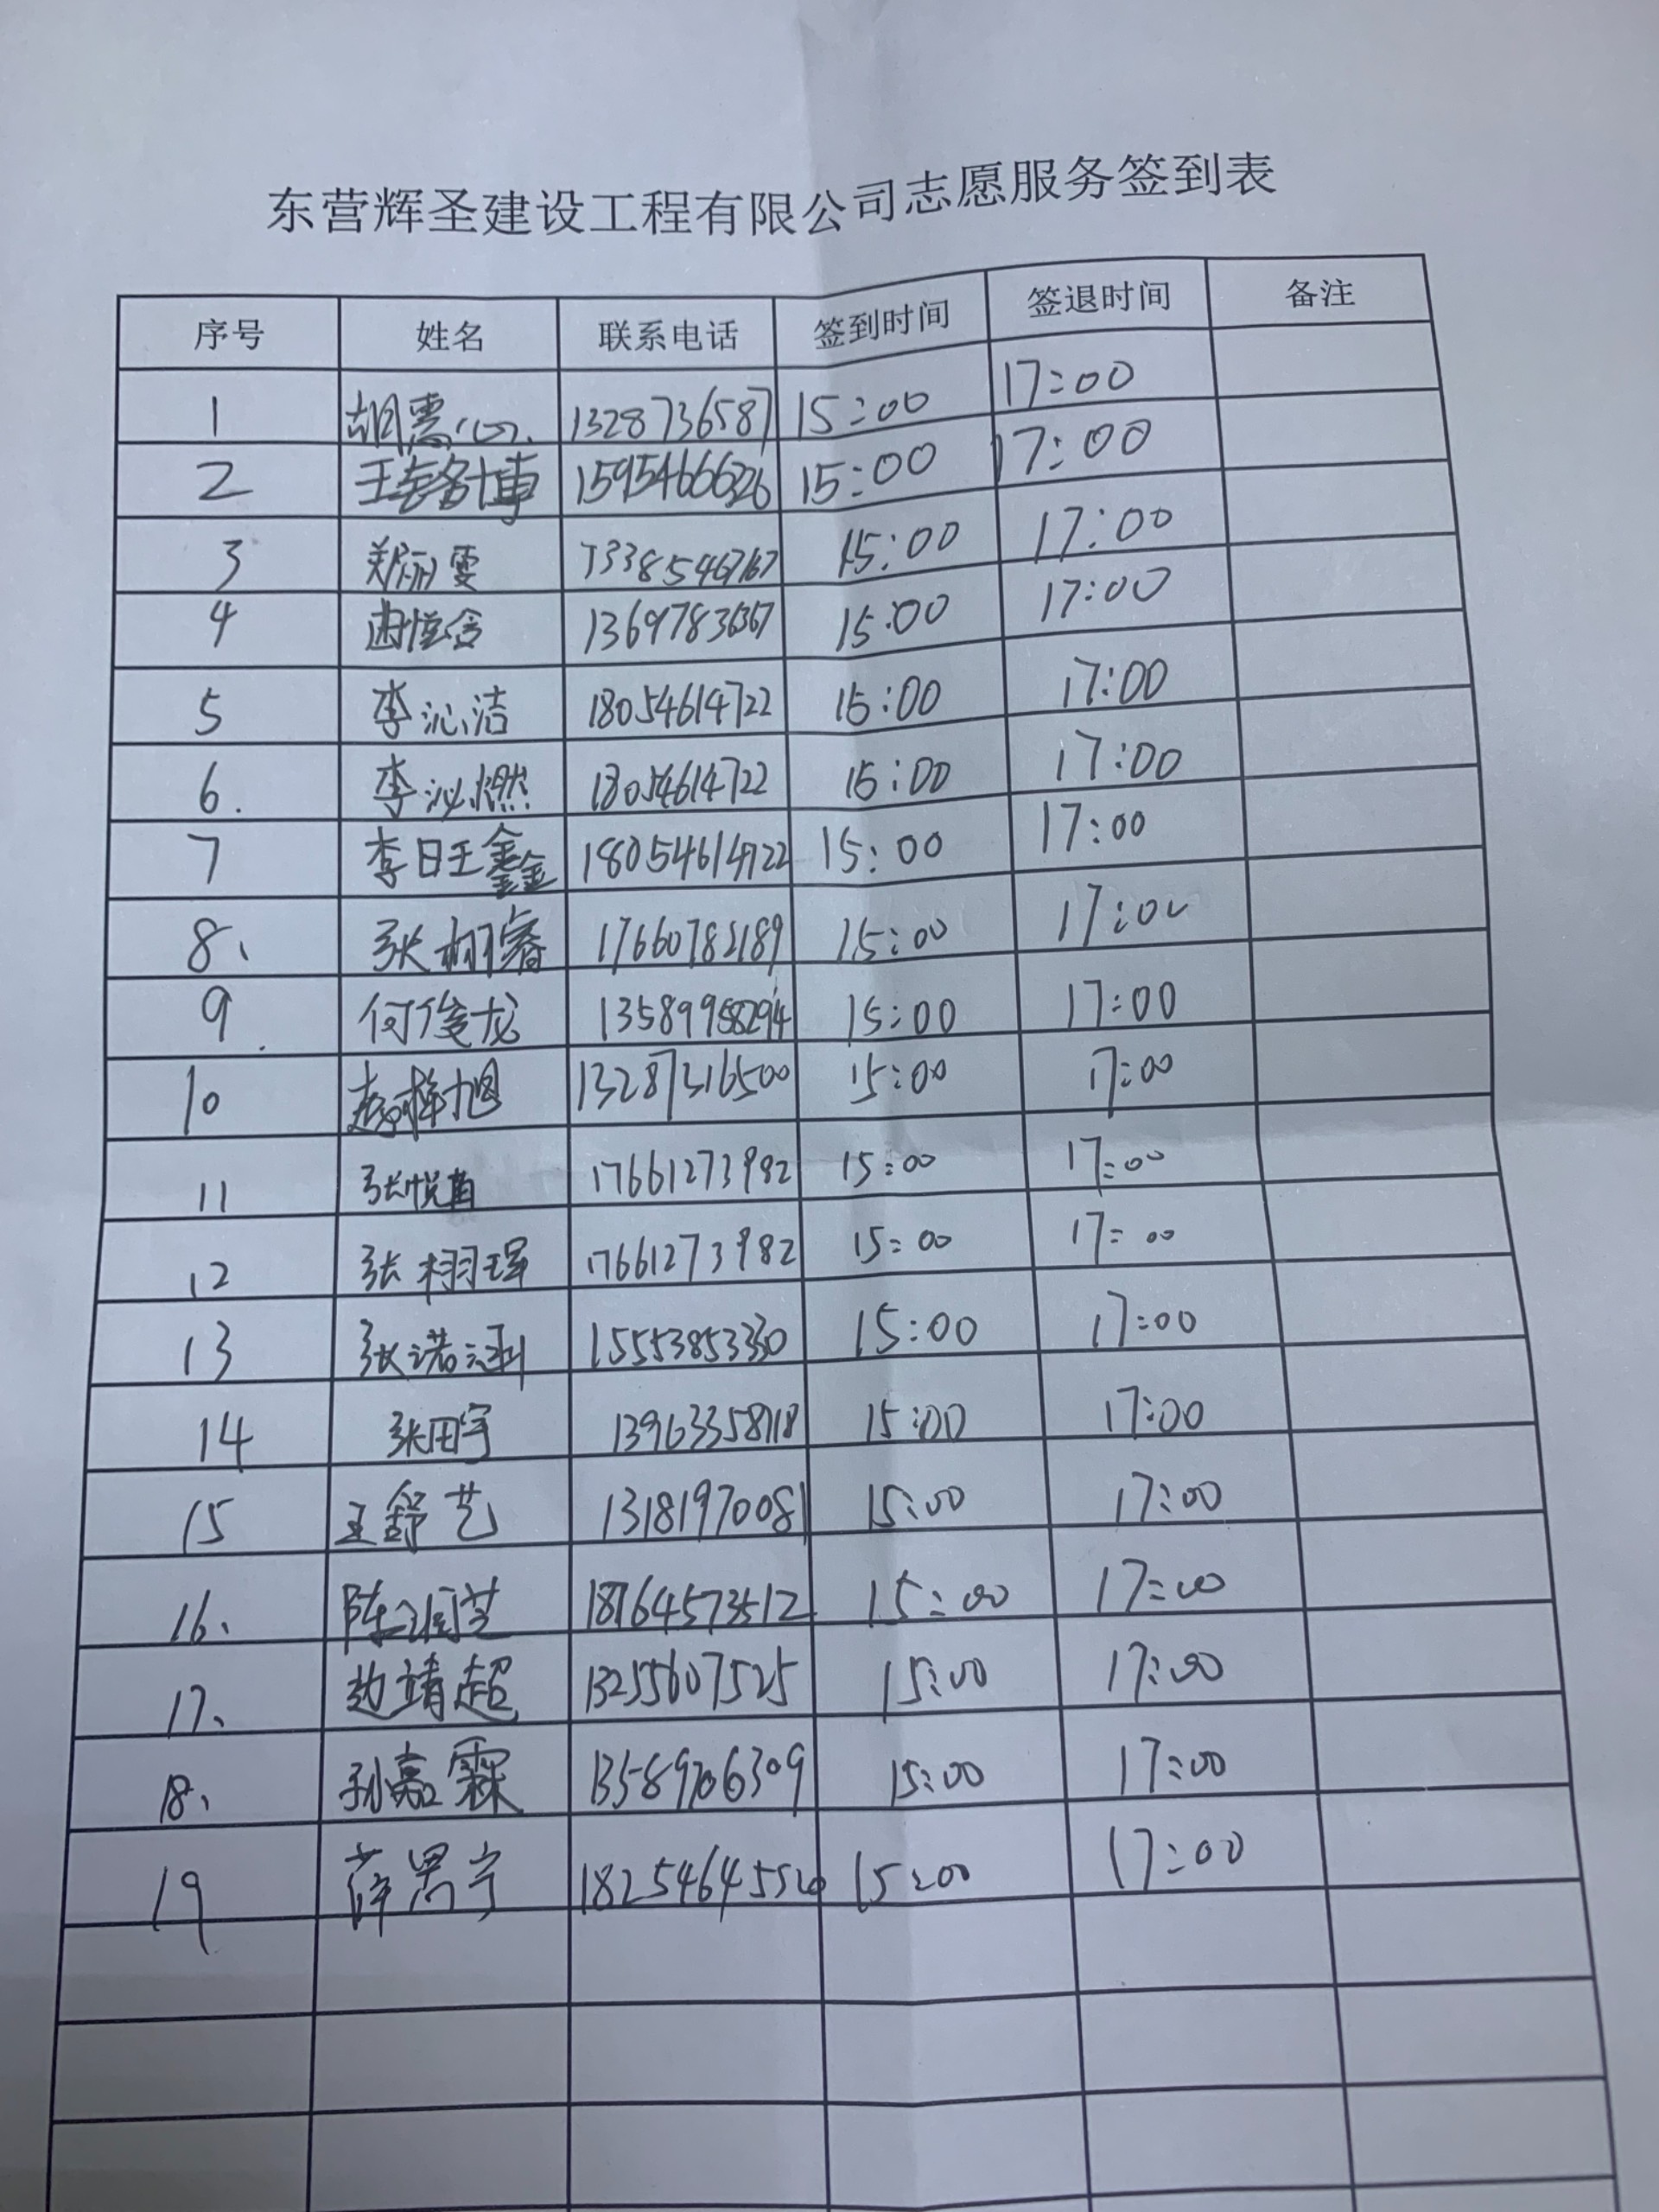 东营辉圣建设工程有限公司志愿服务签到表
序号 姓名 联系电话 签到时间 签退时间 备注
1 15:00 17:00
2 15:00 17:00
3 15:00 17:00
4 15:00 17:00
5 李沁洁 18054614722 15:00 17:00
6. 李沁燃 18054614722 15:00 17:00
7 18054614722 15:00 17:00
8、 张栩睿 17660782189 15:00 17:00
9 何俊龙 13589958294 15:00 17:00
10 13287316500 15:00 17:00
11 17661273982 15:00 17:00
12 张栩珲 17661273982 15:00 17:00
13 张诺涵 15553853330 15:00 17:00
14 13963358118 15:00 17:00
15 王舒艺 13181970081 15:00 17:00
16、 18764573512 15:00 17:00
17、 13255607525 15:00 17:00
18、 孙嘉霖 13589706309 15:00 17:00
19 薛 宁 15:00 17:00